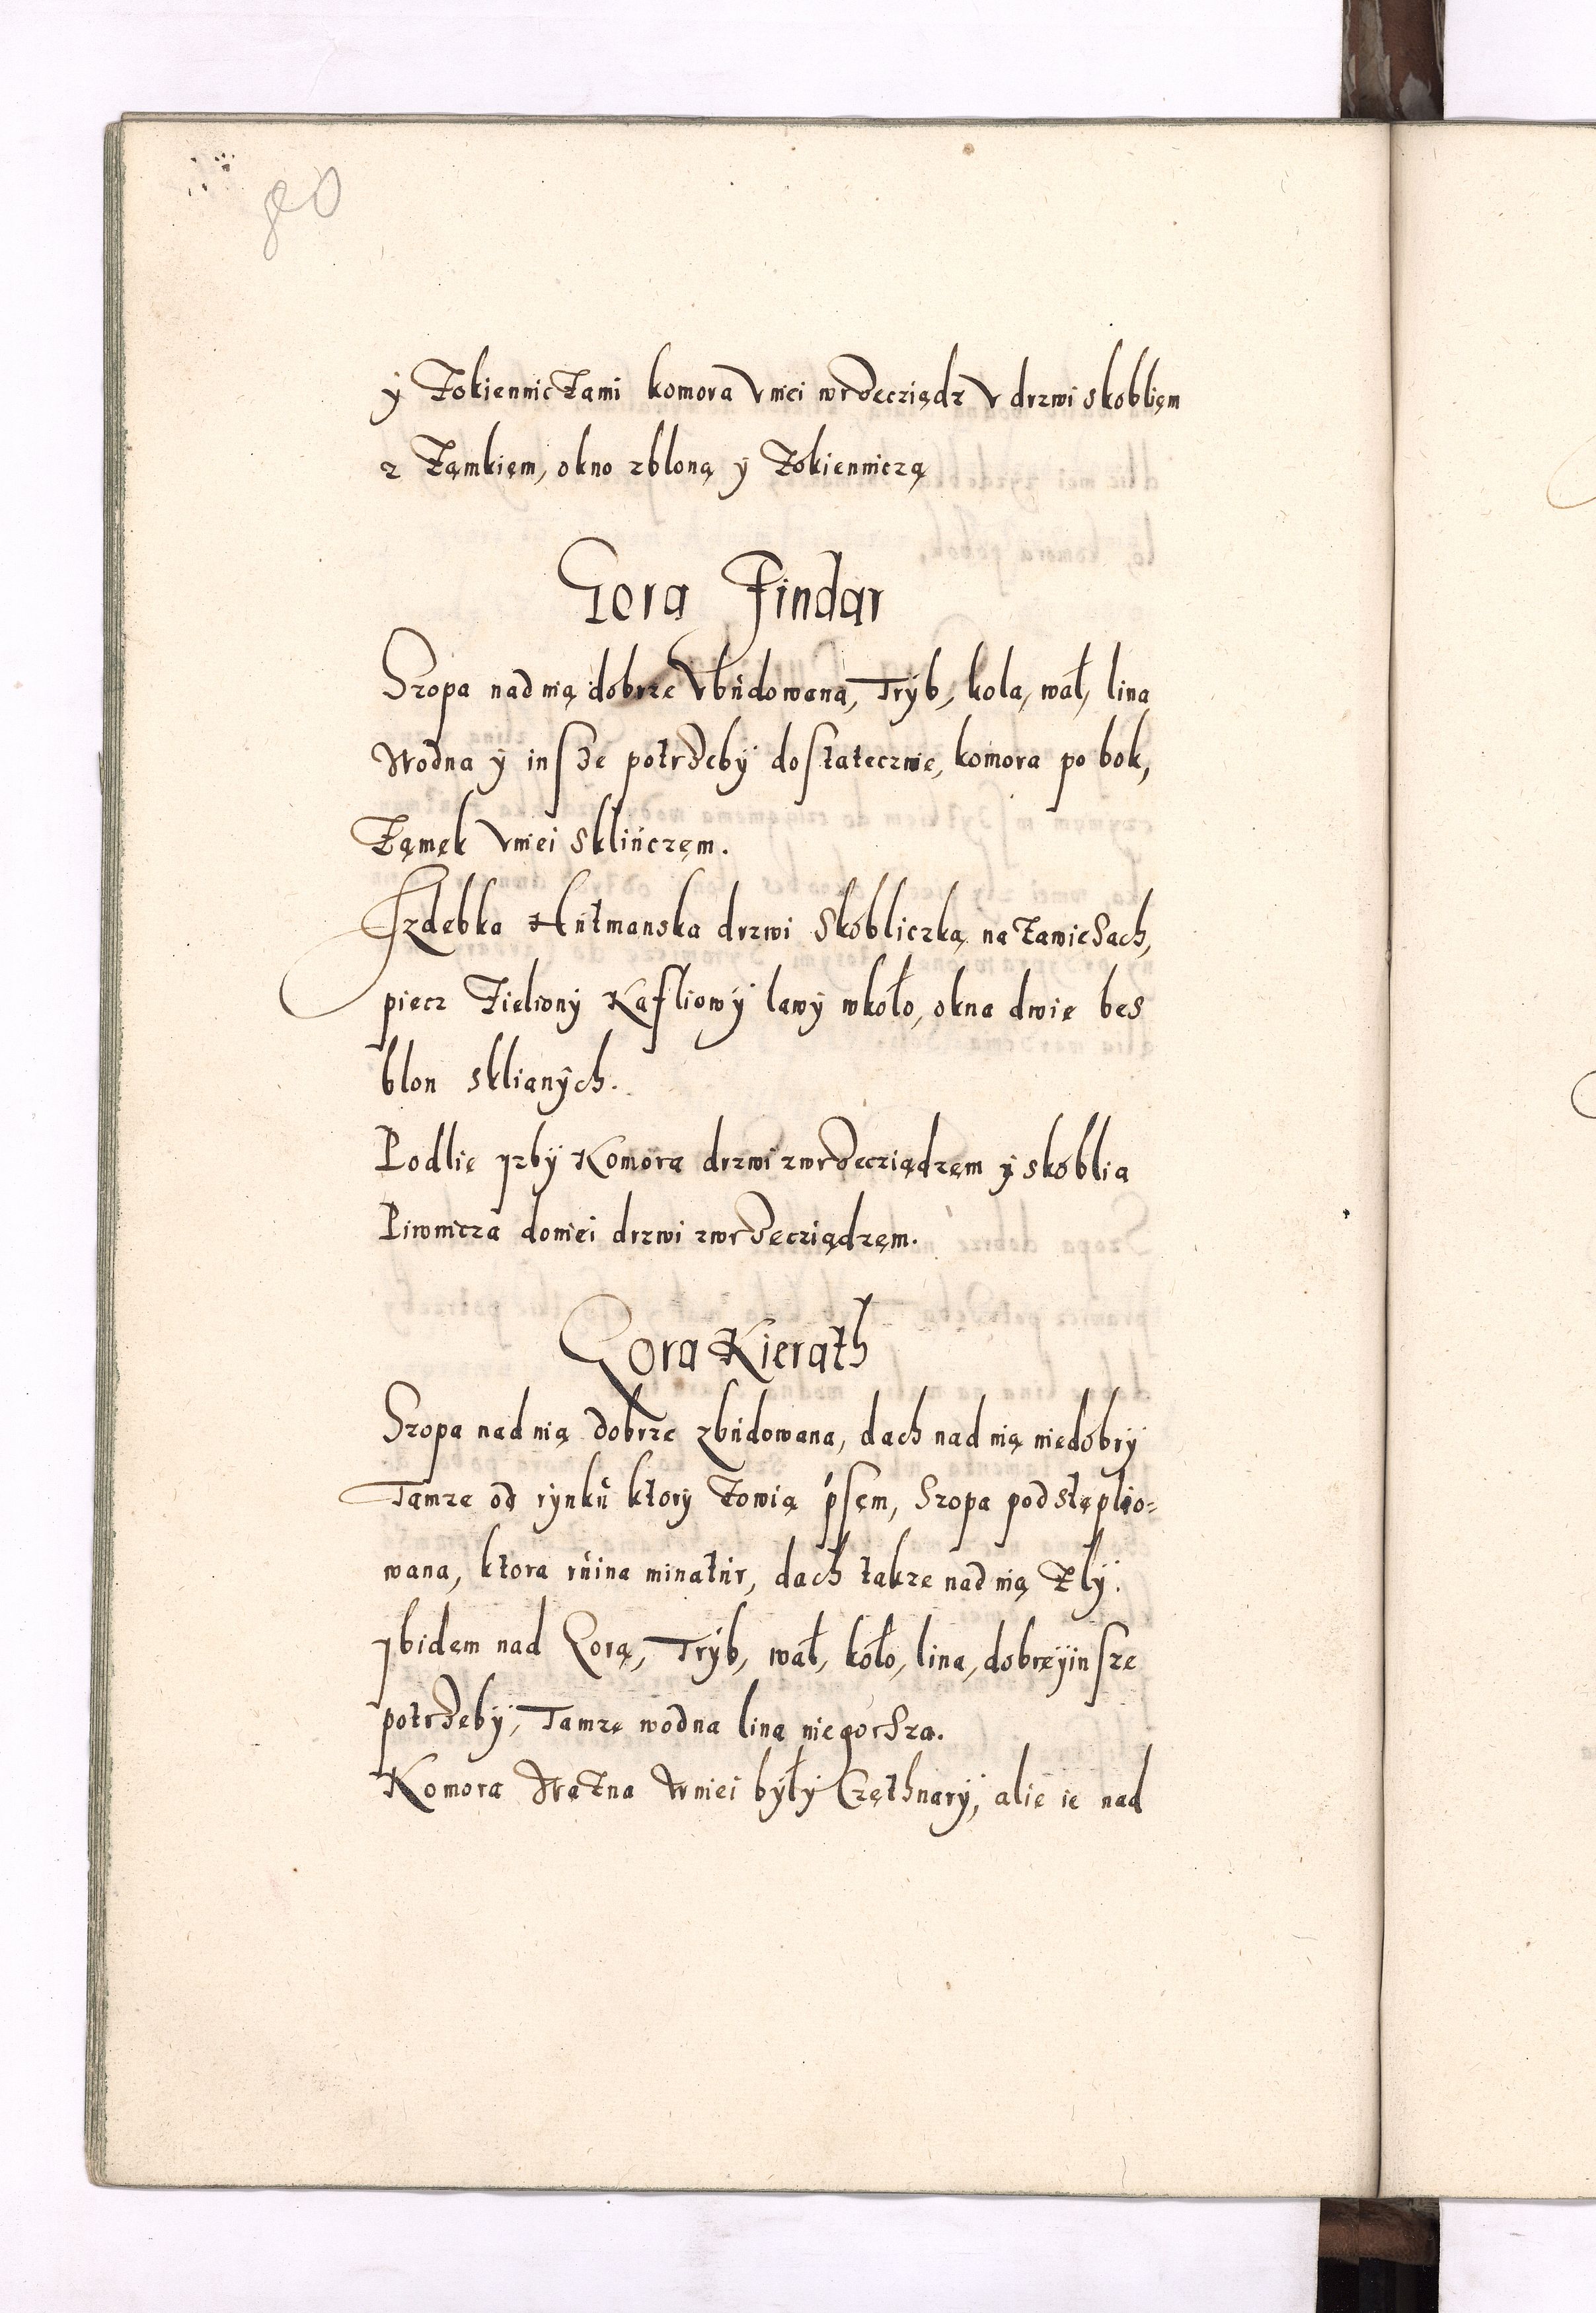 80
ÿ Zokiennicżami komora v niei wrzecziądz v drzwi skoblięm
z Zęmkięm, okno z bloną y Zokienniczą
Gora Findar
Szopa nad nią dobrze Vbudowana, Trÿb, kola, wał, lina
Wodna ÿ insze potrzebÿ dostatecznie, komora po bok,
Zamęk v niei s klińczęm.
Izdebka Hutmanska drzwi s kobliczką na Zawiesach,
piecz Zielionÿ Kafliowÿ lawÿ wkoło, okna dwie bes
blon sklianÿch.
Podlie yzbÿ Komora drzwi z wrzecziądzęm ÿ skoblia
Piwnicza doniei drzwi z wrzecziądzęm.
Gora Kierath
Szopa nad nią dobrze zbudowana, dach nad nią niedobrÿ
Tamze od rÿnku ktorÿ Zowią psęm, Szopa podstęplio=
wana, ktora ruina minatur, dach takze nad nią Zlÿ.
ybidem nad Gorą, Trÿb, wał, koło, lina, dobreÿinsze
potrzebÿ, Tamze wodna lina niegorsza.
Komora Waźna W niei bÿłÿ Częthnarÿ, alie ie nad